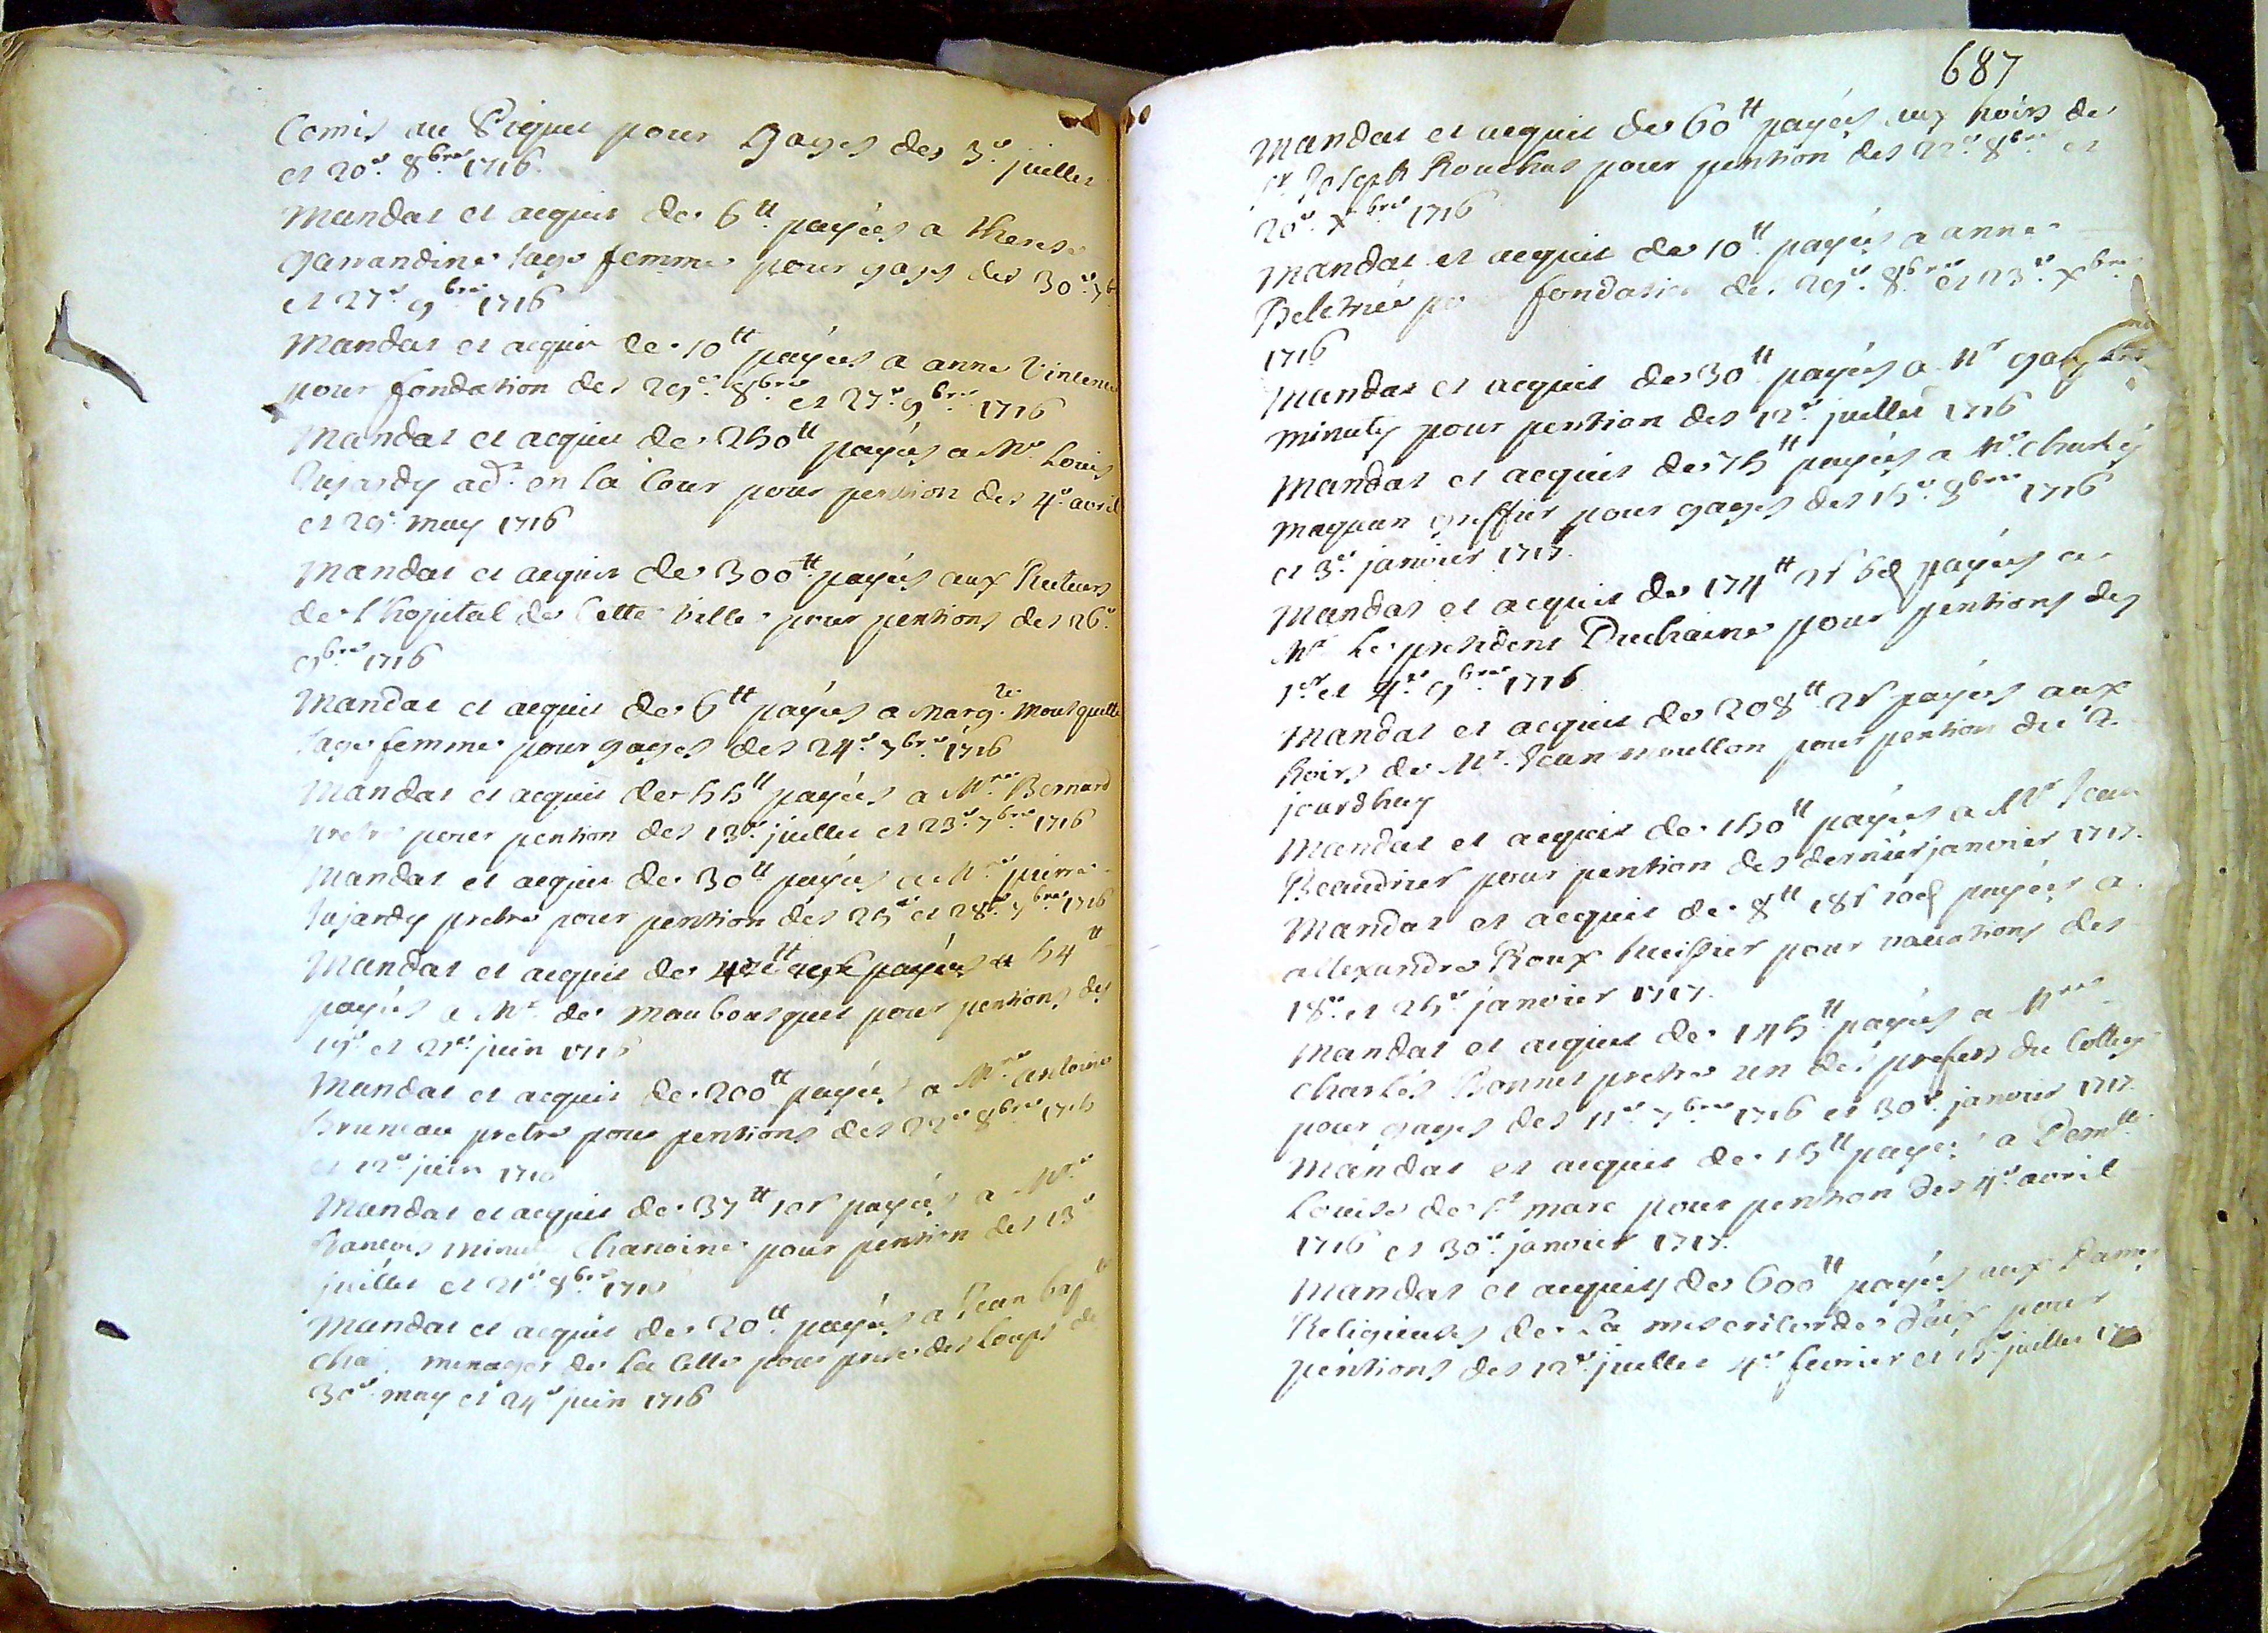 Comis au Piquet pour Gages des 3e. juillet
et 20e. 8bre 1716.
Mandat et acquit de 6tt. payées a therese
garrandine sage femme pour gages des 30e. 7bre
et 27e. 9bre. 1716
Mandat et acquit de 10tt payées a anne Vincens
pour fondation des 29e. 8bre. et 27e. 9bre. 1716
Mandat et acquit de 250tt payées a Me. Louis
Jujardy adt. en la Cour pour pention des 4e. avril
et 29e. may 1716
Mandat et acquit de 300tt. payées aux Recteurs
de l'hopital de Cette Ville pour pentions des 26e.
9bre 1716
Mandat et acquit de 6tt payées a Margte. Mousquette
sage femme pour gages des 24e. 7bre. 1716
Mandat et acquit de 55tt payées a Mre Bernard
pretre pour pention des 13e. juillet et 23e. 7bre. 1716
Mandat et acquit de 30tt payées a Mre pierre
Jujardy pretre pour pention des 25e et 28e. 7bre. 1716
Mandat et acquit de payées a 54tt
payées a Mr. de Maubousquet pour pentions des
19e. et 21e. juin 1716
Mandat et acquit de 200tt payées a Mre antoine
Bruneau pretre pour pentions des 22e 8bre 1715
et 12e juin 1716
Mandat et acquit de 37tt 10s payées a Mre
francois Minuty Chanoine pour pention des 13e
juillet et 21e 8bre 1716
Mandat et acquit de 20tt. payées a Jean bapte
menager de la Celle pour prise des Loups de
30e. may et 24e juin 1716
687
Mandat et acquit de 60tt payées aux hoirs de
sr. Joseph Rouchas pour pention des 22e. 8bre et
20e. Xbre 1716
Mandat et acquit de 10tt payées a anne
fondation des 29e. 8bre et 23e. Xbre
1716
Mandat et acquit de 30tt payées a Mr
minuty pour pention des 12e juillet 1716
Mandat et acquit de 75tt payées a Me. Charles
maquan greffier pour gages des 15e. 8bre 1716
et 3e. janvier 1717.
Mandat et acquit de 174tt 2s 6d payées a
Mr. Le president Duchaine pour pentions des
1er et 4e. 9bre. 1716
Mandat et acquit de 208tt. 2s payées aux
hoirs de Mr. Jean moullon pour pention de 2.
jourdhuy
Mandat et acquit de 150tt payées a Mr Jean
Beaudrier pour pention des dernier janvier 1717.
Mandat et acquit de 8tt 18s 10d payées a
allexandre Roux huissier pour vaccations des
18e. et 25e. janvier 1717.
Mandat et acquit de 145tt payées a Mre
Charles Bonnet pretre un des prefets du College
pour gages des 11e. 7bre 1716 et 30e. janvier 1717.
Mandat et acquit de 15tt payées a Demlle
Louise de St marc pour pention des 4e avril
1716 et 30e. janvier 1717.
Mandat et acquit de 600tt payées aux Dames
Religieuses de La misericorde d'aix pour
pentions des 12e. juillet 4e fevrier et 15 juillet